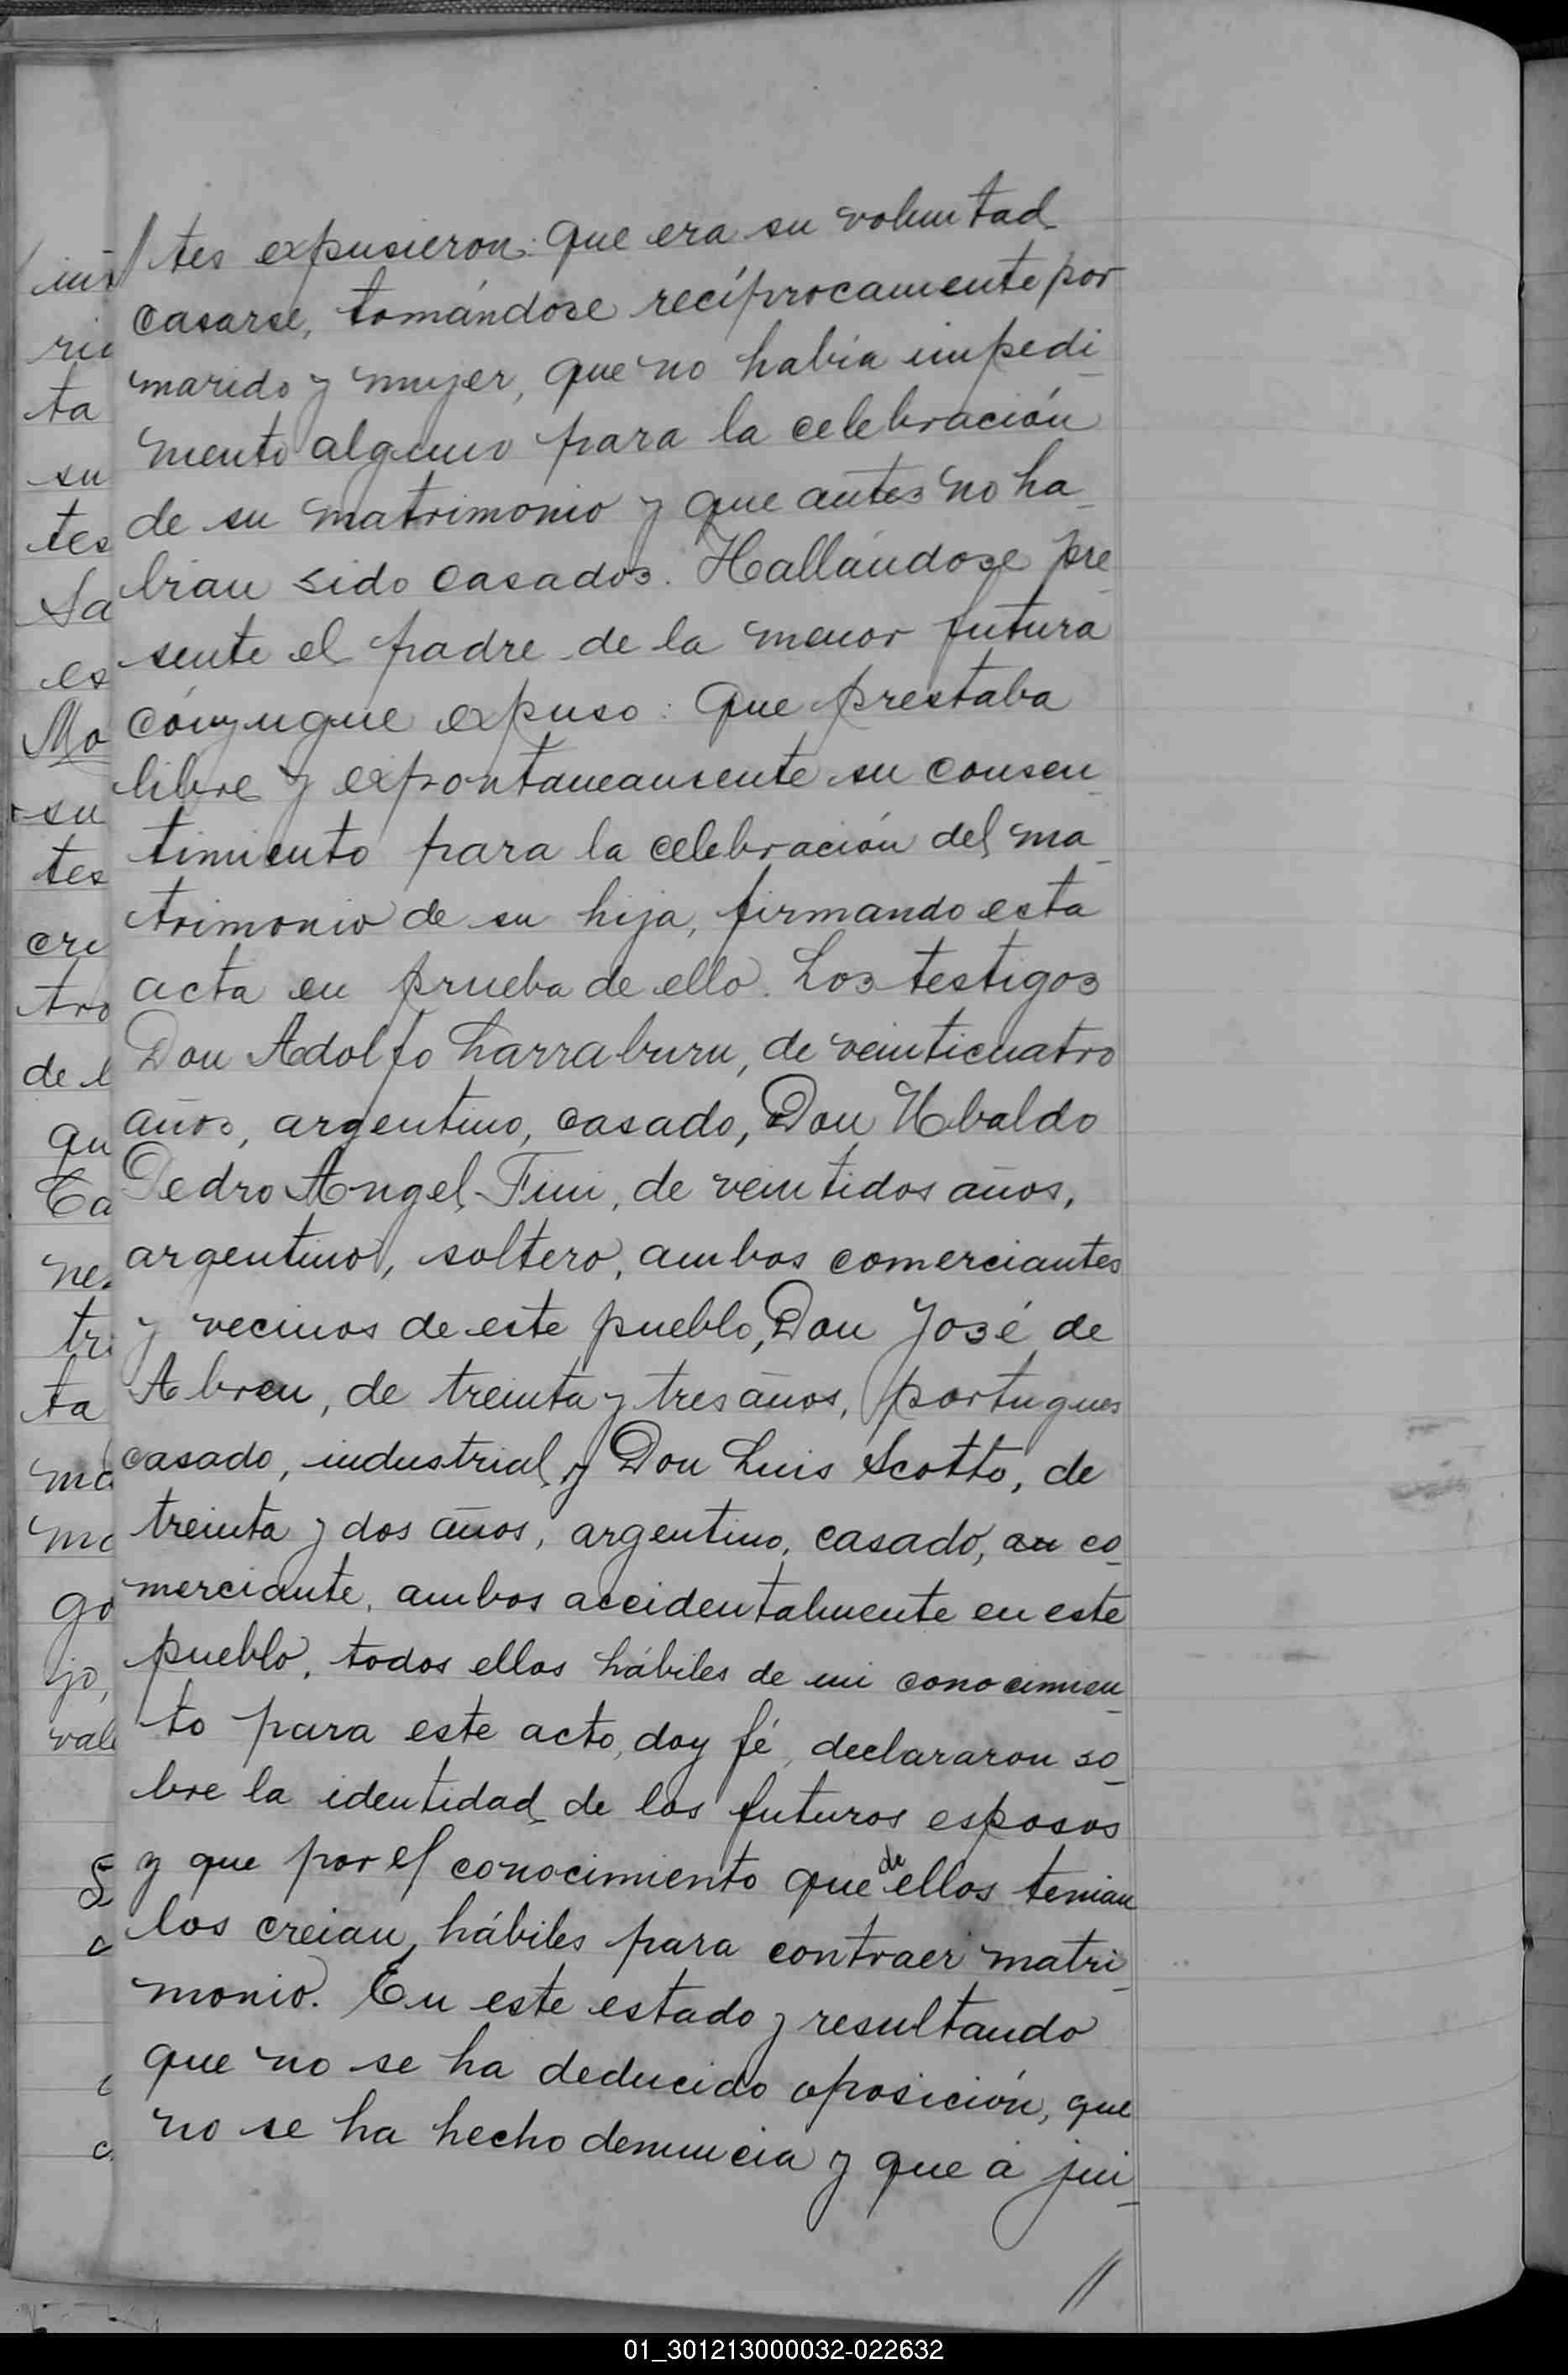 // tes expusieron: Que era su voluntad
casarse, tomándose recíprocamente por
marido y mujer, que no había impedi-
mento alguno para la celebración
de su matrimonio y que antes no ha-
bian sido casados. Hallándose pre-
sente el padre de la menor futura
cónyugue expuso: Que prestaba
libre y expontaneamente su consen-
timiento para la celebración del ma-
trimonio de su hija, firmando esta
acta en prueba de ello. Los testigos
Don Adolfo Larraburu, de veinticuatro
años, argentino, casado, Don Ubaldo
Pedro Angel Fini, de veintidos años,
argentino, soltero, ambos comerciantes
y vecinos de este pueblo, Don José de
Abreu, de treinta y tres años, portugues
casado, industrial y Don Luis Scotto, de
treinta y dos años, argentino, casado, co-
merciante, ambos accidentalmente en este
pueblo, todos ellos hábiles de mi conocimien-
to para este acto, doy fé, declararon so-
bre la identidad de los futuros esposos
y que por el conocimiento que de ellos tenian
los creian, hábiles para contraer matri-
monio. En este estado y resultando
que no se ha deducido oposición, que
no se ha hecho denuncia y que á jui-
//
01_301213000032-022632